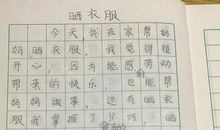 晒衣服
今天我在家帮妈
妈晒衣服。我觉得很
开心，因为能感劳动
带来的快乐，也能帮
妈妈做事，还巧晒衣
服我掌握了